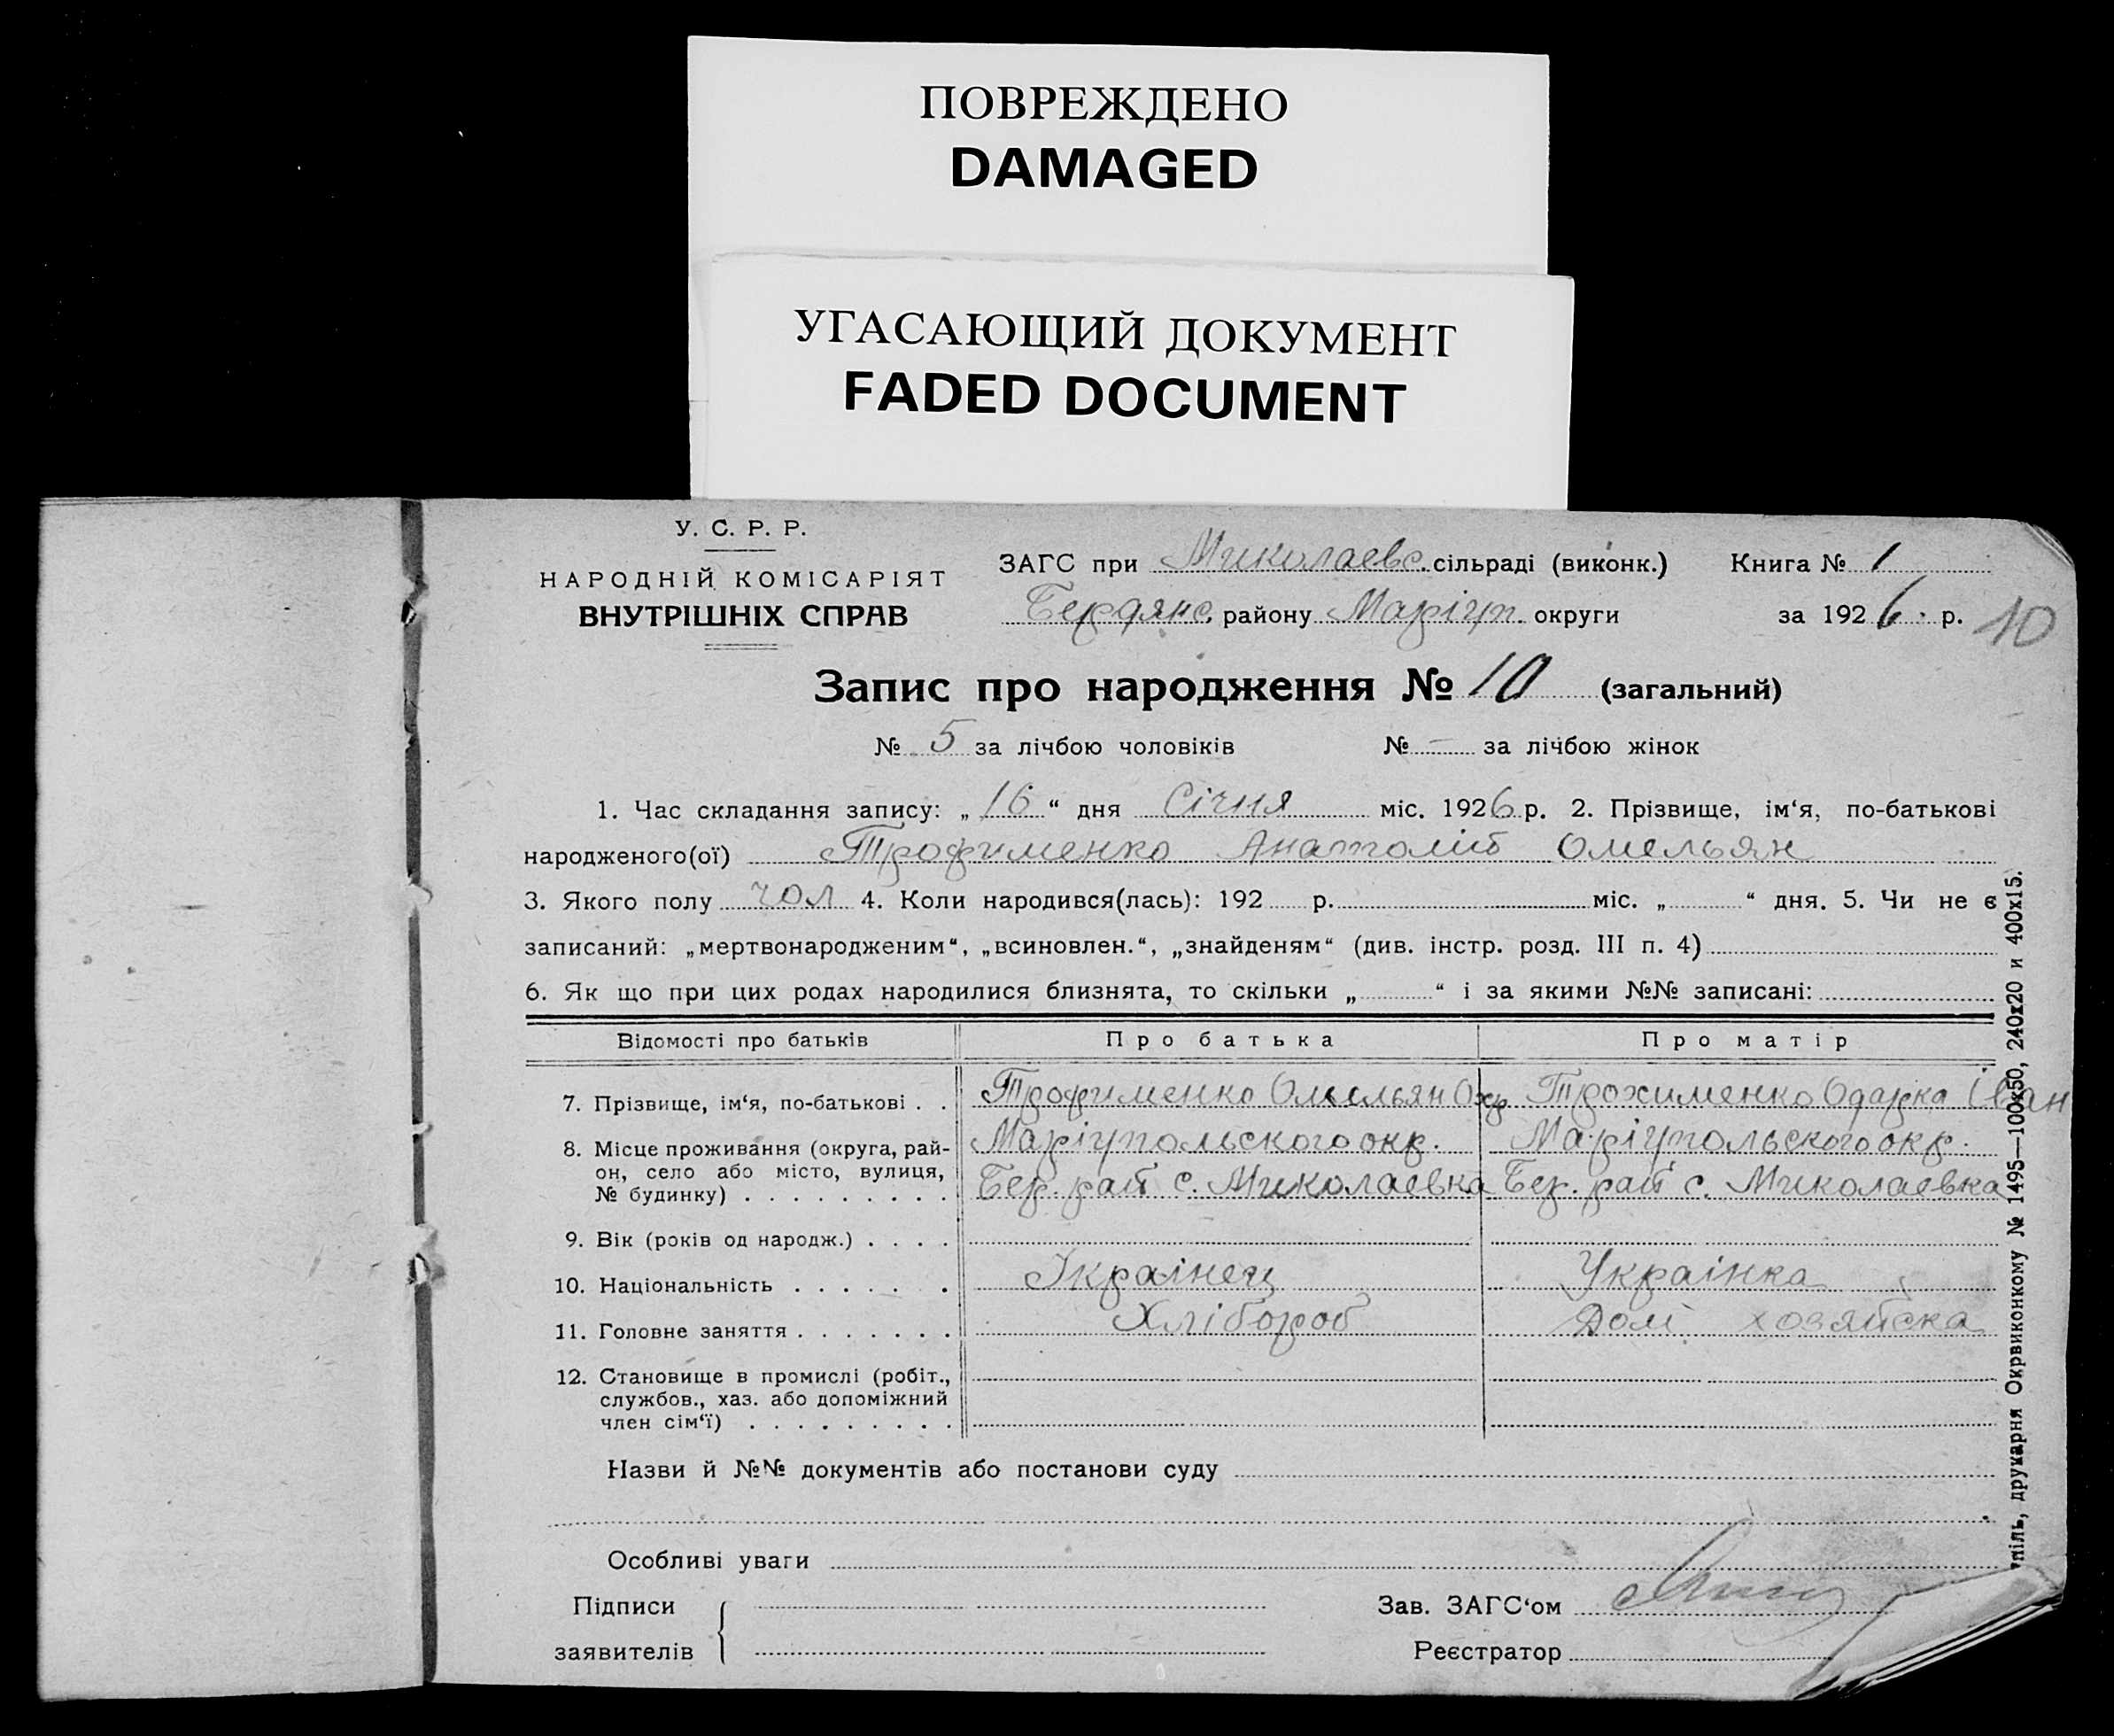 ПОВРЕЖДЕНО
DAMAGED
УГАСАЮЩИЙ ДОКУМЕНТ
FADED DOCUMENT
У. С. Р. Р.
НАРОДНІЙ КОМІСАРІЯТ
ВНУТРІШНІХ СПРАВ
ЗАГС при Миколаевс. сільраді (виконк.) Книга № 1
Бердянс. району Маріуп. округи за 1926 р. 10
Запис про народження № 10 (загальний)
№ 5 за лічбою чоловіків № — за лічбою жінок
1. Час складання запису: „16“ дня Січня міс. 1926 р. 2. Прізвище, ім‘я, по-батькові
народженого(ої) Трофименко Анатолій Омельян
3. Якого полу чол 4. Коли народився(лась): 192 р. міс. „ “ дня. 5. Чи не є
записаний: „мертвонародженим“, „всиновлен.“, „знайденям“ (див. інстр. розд. III п. 4)
6. Як що при цих родах народилися близнята, то скільки „ “ і за якими №№ записані:
Відомості про батьків Про батька Про матір
7. Прізвище, ім‘я, по-батькові . . Трофименко Омельян Трохименко Одарка Іван
8. Місце проживання (округа, рай- Маріупольского окр. Маріупольского окр.
он, село або місто, вулиця,
№ будинку) . . . . . . . . . Бер. рай с. Миколаевка Бер. рай с. Миколаевка
9. Вік (років од народж.) . . . .
10. Національність . . . . . . Украінец Украінка
11. Головне заняття . . . . . . . Хлібороб Домі хозяйска
12. Становище в промислі (робіт.,
службов., хаз. або допоміжний
член сім‘ї) . . . . . . . . .
Назви й №№ документів або постанови суду
Особливі уваги
Підписи
заявителів
Зав. ЗАГС‘ом
Реєстратор
піль, друкарня Окрвиконкому № 1495—100х50, 240х20 и 400х15.